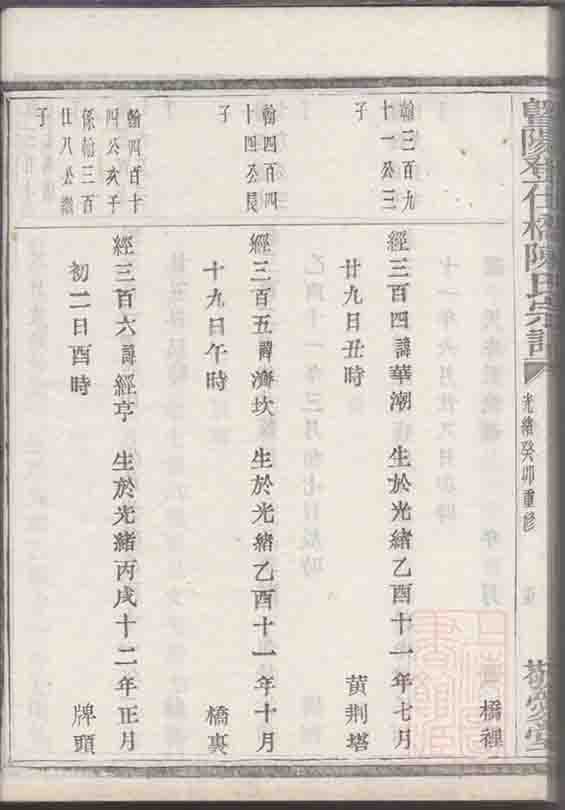 暨陽登仕橋陳氏宗譜
光緒癸卯重修
敬愛堂
翰三百九
十一公三
子
橋裡
經三百四 諱華潮 生於光緒乙酉十一年七月
廿九日丑時 黄荆塔
翰四百四
十四公長
子
經三百五 諱濟坎 生於光緒乙酉十一年十月
十九日午時 橋裏
翰四百十
四公亥子
係翰三百
廿八公繼
子
經三百六 諱經亨 生於光緒丙戌十二年正月
初二日酉時 牌頭